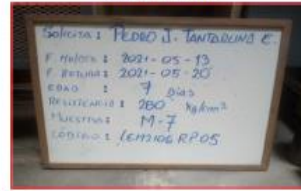 Solicita : PEDRO J. TANTARUNA E.
F. MOLDEO : 2021-05-13
F. ROTURA : 2021-05-20
EDAD : 7 Días
RESISTENCIA : 280 Kg/cm²
MUESTRA : M-7
CÓDIGO : LEM2106RP.05